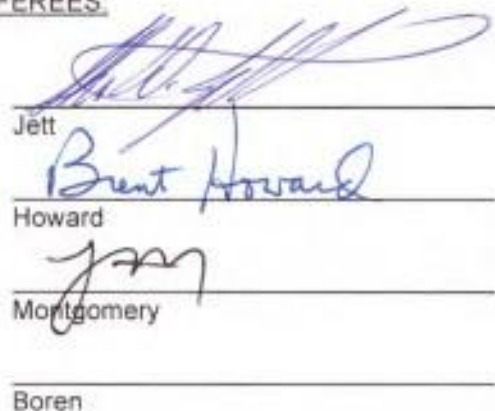 FEREES
Jett
Brent Howard
Howard
Montgomery
Boren